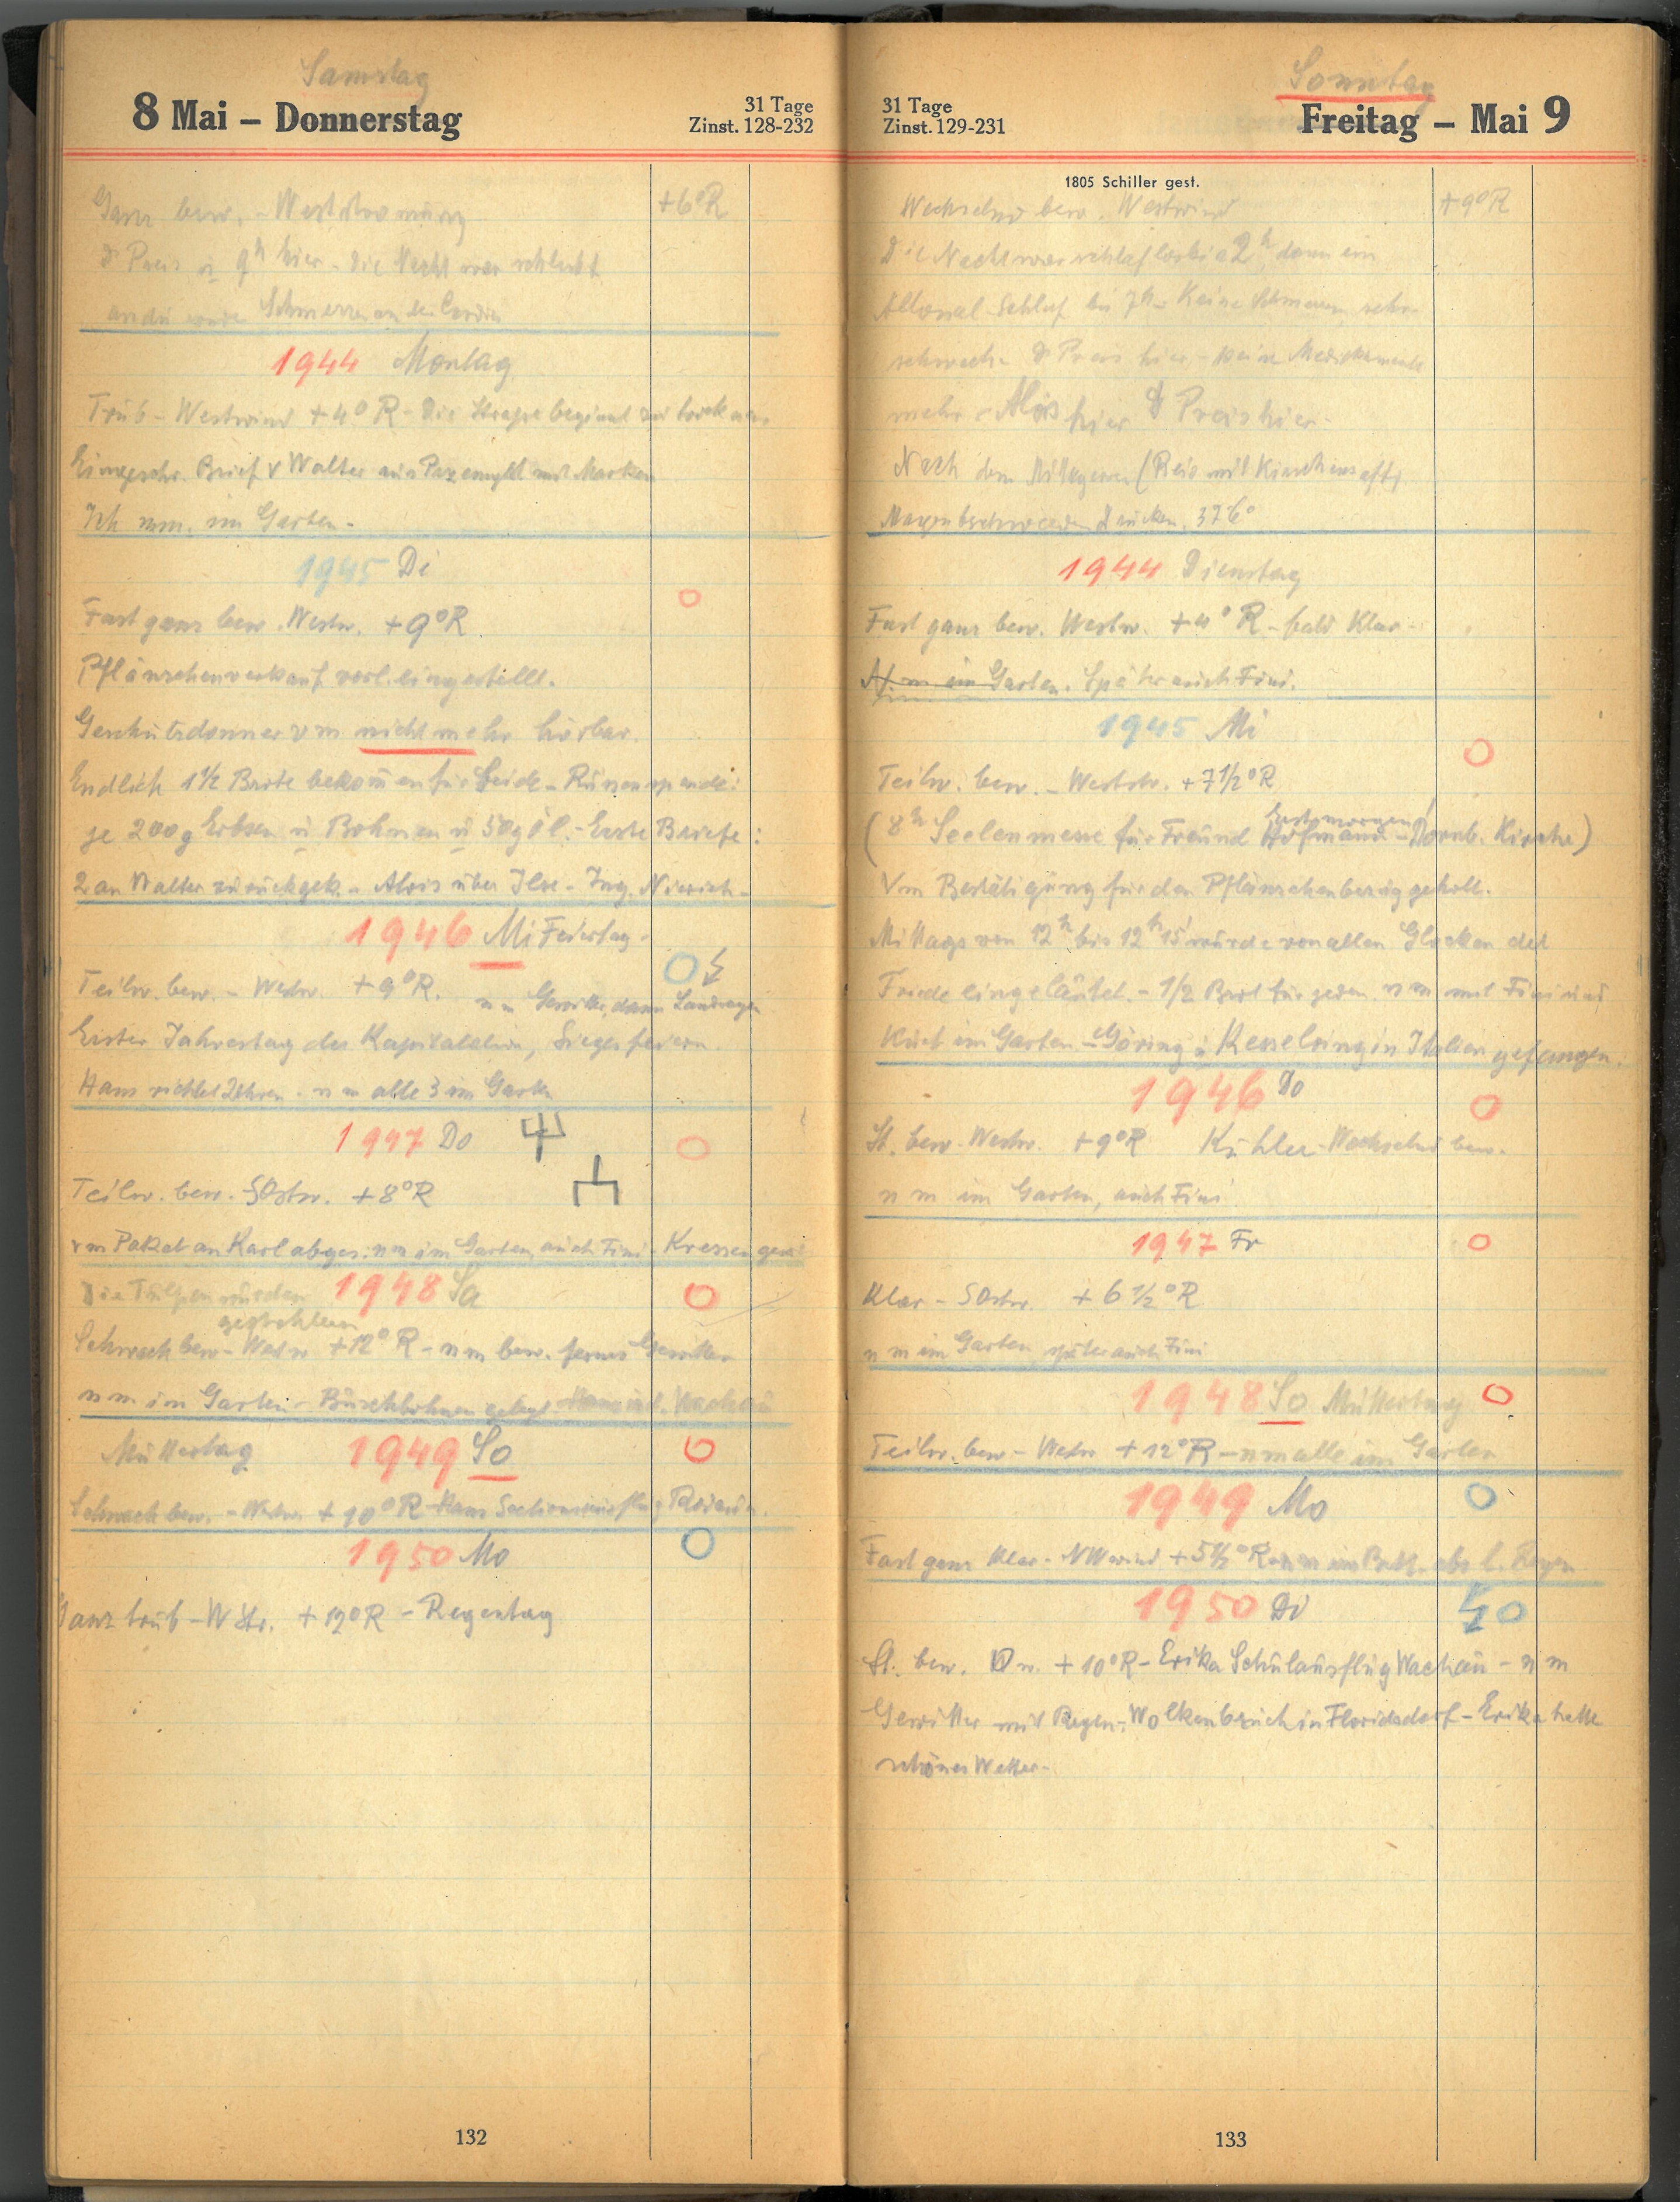 Samstag
8 Mai – Donnerstag
31 Tage
Zinst. 128-232
Ganz bew. - Westströmung +6°R
9h hier - die Nacht war schlecht
Schmerzen an der
1944 Montag
Trüb - Westwind +4° R - Die Strasse beginnt zu trocknen
Eingeschr. Brief v Walter mit Marken
Ich nm. im Garten -
1945 Di
Fast ganz bew. Westw. +9°R.
Pflänzchenverkauf vorl. eingestellt.
Geschützdonner vm nicht mehr hörbar.
Endlich 1½ Brote bekommen für beide - Russenspende:
je 200g Erbsen u Bohnen u 50g Öl. - Erste Briefe:
2 an Walter zurückgek. - Alois über Ilse - Ing.
1946 Mi Feiertag -
Teilw. bew. - Westw +9°R. nm Gewitter, dann Landregen
Erster Jahrestag der Kapitulation, Siegesfeiern.
Hans richtet Uhren. nm alle 3 im Garten
1947 Do
Teilw. bew. SOstw. +8°R
vm Paket an Karl abges. nm im Garten, auch Fini - Kressen
Die Tulpen wurden 1948 Sa
gestohlen
Schwach bew - Westw +12° R - nm bew. fernes Gewitter
nm im Garten - Buschbohnen gelegt
Muttertag 1949 So
Schwach bew. - Westw. +10°R - Hans Sectionsausflug
1950 Mo
Ganz trüb - W Str. +12°R - Regentag
132
Sonntag
31 Tage
Zinst. 129-231
Freitag – Mai 9
1805 Schiller gest.
Wechselnd bew. Westwind +9°R
Die Nacht war schlaflos bis 2h dann ein
Allonal-Schlaf bis 7h - Keine Schmerzen, sehr
schwach. Dr Preis hier - keine Medikamente
mehr - Alois hier Dr Preis hier -
Nach dem Mittagessen (Reis mit Kirschensaft)
37 6°
1944 Dienstag
Fast ganz bew. Westw. +4° R - bald Klar -
Garten. Später auch Fini.
1945 Mi
Teilw. bew. - Weststr. +7 1/2°R
Erst morgen!
(8h Seelenmesse für Freund Hofmann - Dornb. Kirche)
Vm Bestätigung für den Pflänzchenbezug geholt.
Mittags von 12h bis 12h15 wurde von allen Glocken der
Friede eingeläutet. - 1/2 Brot für jeden nm mit Fini und
im Garten - Göring u Kesselring in Italien gefangen.
1946 Do
St. bew. Westw. +9°R Kühler - Wechselnd bew.
nm im Garten, auch Fini
1947 Fr
Klar - SOstw +6 1/2°R
nm im Garten, später auch Fini
1948 So Muttertag
Teilw. bew - Westw +12°R - nm alle im Garten
1949 Mo
Fast ganz klar - NWwind +5½°R
1950 Di
St. bew. +10°R - Erika Schulausflug Wachau - nm
Gewitter mit Regen, Wolkenbruch in Floridsdorf - Erika hatte
schönes Wetter -
133